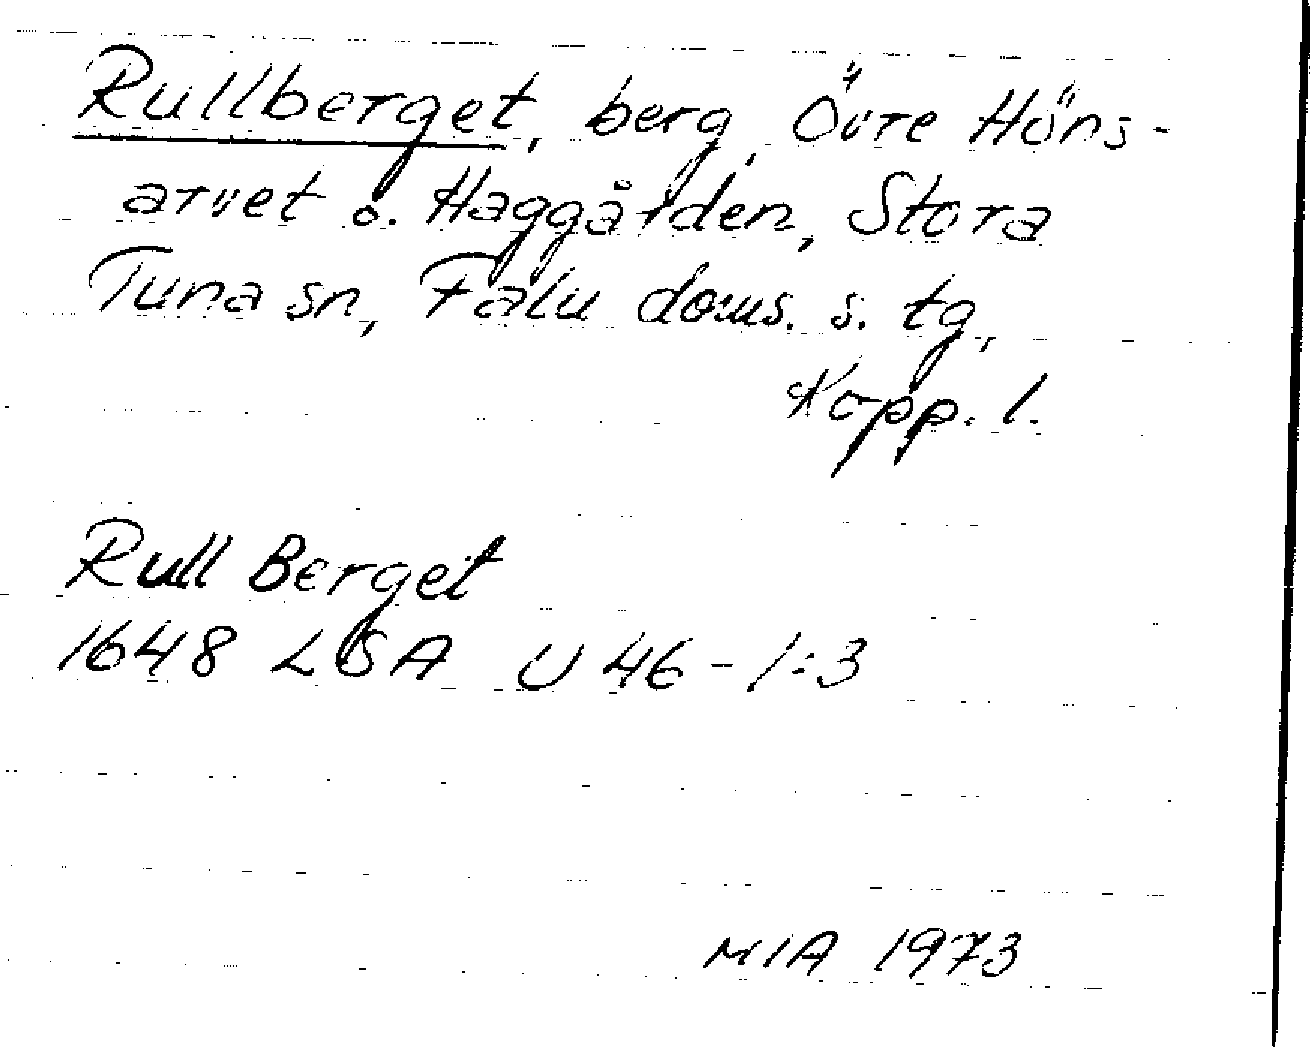 Rullberget, berg, Övre Höns-
arvet o. Haggården, Stora
Tuna sn, Falu doms. s. tg,
Kopp. l.
Rull Berget
1648 LSA U 46-1:3
MIA 1973